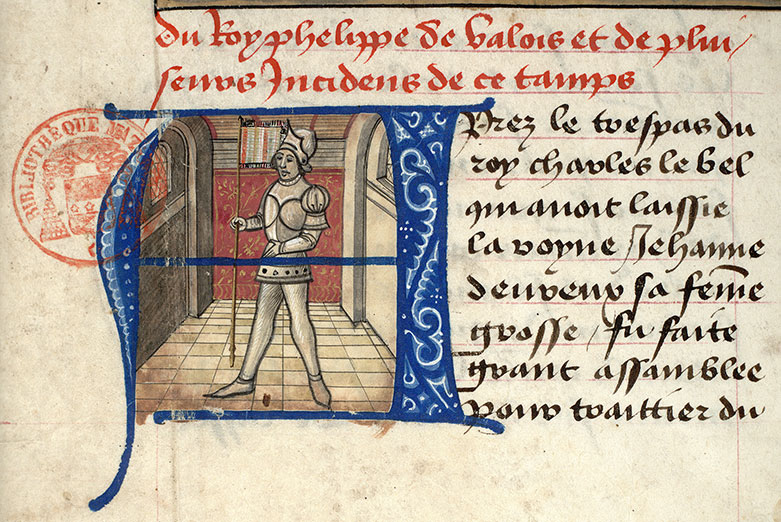 du Roy phelippe de Valois et de plui/
seurs Incidens de ce tamps
BIBLIOTHEQUE
Aprez le trespas du
roy charles le bel
qui auoit laissie
la royne Jehanne
deureux sa feme
grosse / fu faite
grant assamblee
pour traittier du